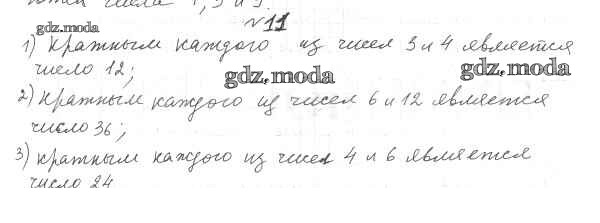 №11
gdz.moda
1) Кратным каждого из чисел 3 и 4 является
число 12;
gdz.moda gdz.moda
2) Кратным каждого из чисел 6 и 12 является
число 36;
3) кратным каждого из чисел 4 и 6 является
число 24